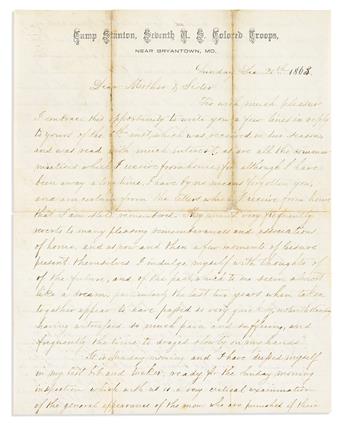 Camp Stanton, Seventh U. S. Colored Troops,
NEAR BRYANTOWN, MD.
Sunday Dec 20th 1863.
Dear Mother & Sister
with much pleasure
I embrace this opportunity to write you a few lines in reply
to yours of the inst, which was received in due season
and was read with much interest, as are all the commu-
nications which I receive from home, for although I have
been away a long time, I have by no means forgotten you,
and am certain from the letters which I receive from home
that I am still remembered. My mind very frequently
reverts to many pleasing remembrances and association
of home, and as now and then a few moments of leisure
present themselves I indulge myself with thoughts of
of the future, and of the past, which to me seem almost
like a dream, particularly the last two years when taken
together appear to have passed so very quickly, notwithstanding
having witnessed so much pain and suffering, and
frequently the time to draged slowly on my hands.
It is Sunday morning and I have dressed myself
in my best bib and tucker, ready for the Sunday morning
inspection which with us is a very critical examination
of the general appearance of the men who are punished if their